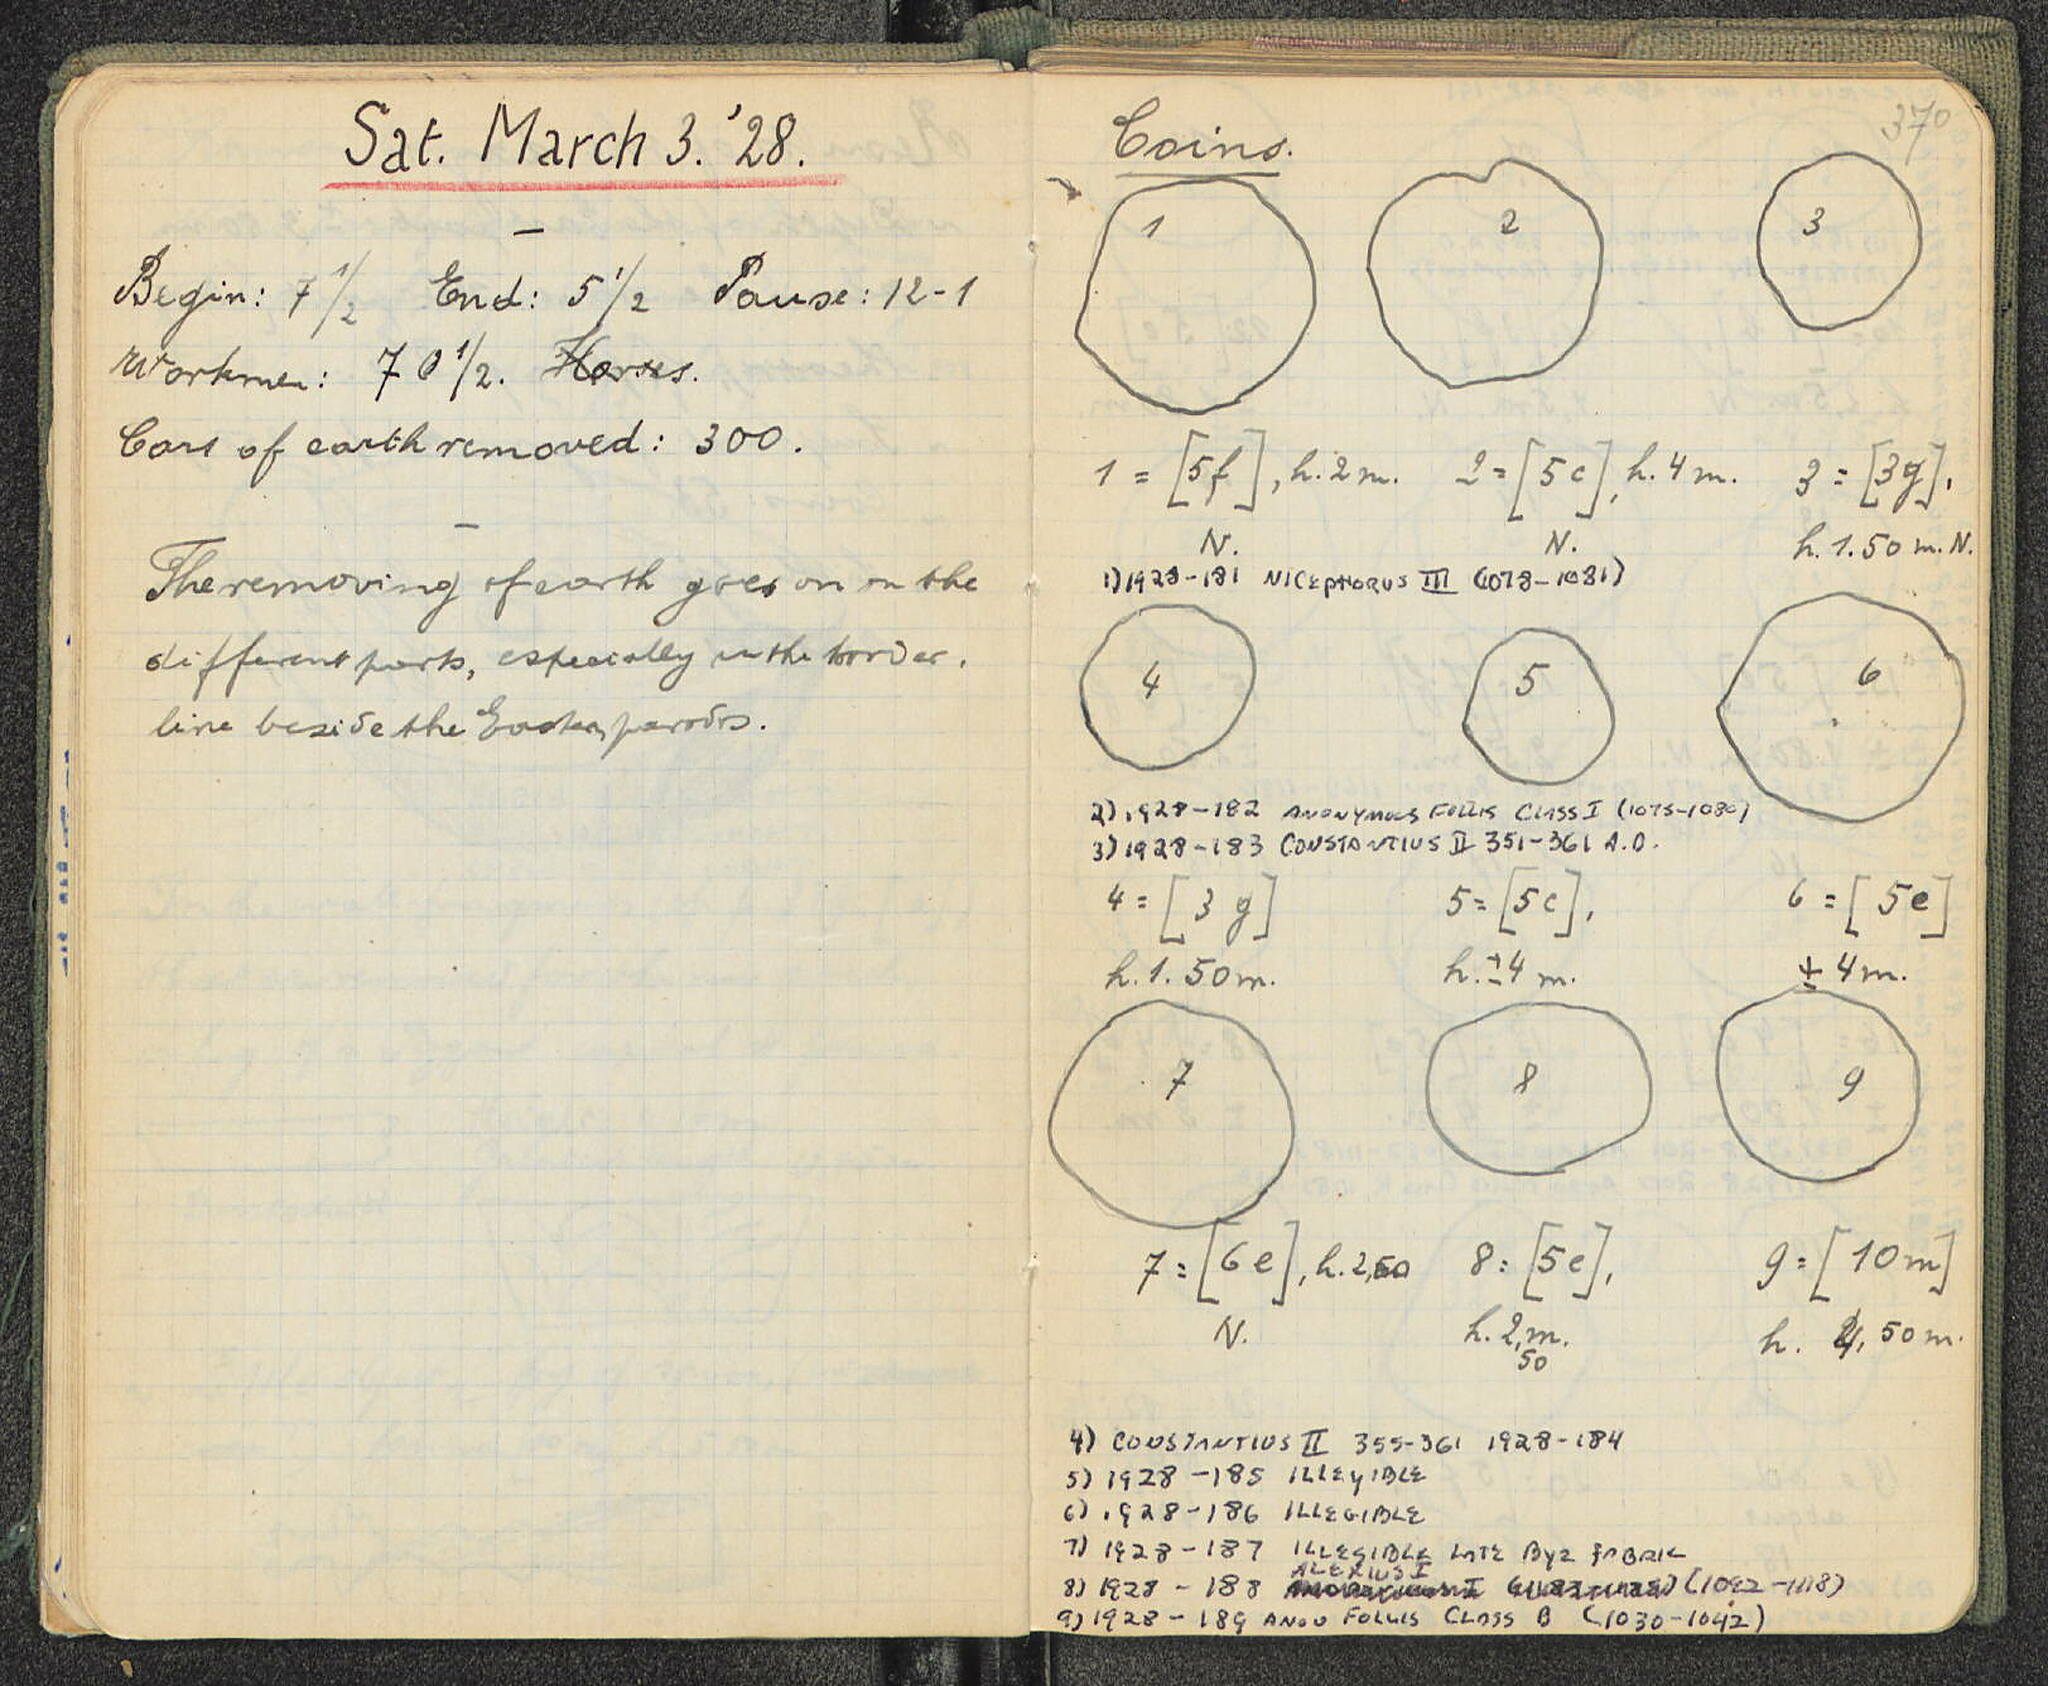 Sat. March 3. '28.
Begin: 7 1/2 End: 5 1/2 Pause: 12-1
Workmen: 70 1/2. Horses.
Cars of earth removed: 300.
The removing of earth goes on on the
different parts, especially in the border.
line beside the Eastern parodos.
370
Coins.
1 2 3
1 = [5f], h. 2 m. 2 = [5c], h. 4 m. 3 = [3g],
N. N. h. 1.50 m. N.
1) 1928-181 NICEPHORUS III (1078-1081)
4 5 6
2) 1928-182 ANONYMOUS FOLLIS CLASS I (1075-1080)
3) 1928-183 CONSTANTIUS II 351-361 A.D.
4 = [3 g] 5 = [5c], 6 = [5e]
h. 1.50 m. h. ± 4 m. ± 4 m.
7 8 9
7 = [6e], h. 2,50 8 = [5e], 9 = [10m]
N. h. 2, m. h. 4,50 m.
50
4) CONSTANTIUS II 355-361 1928-184
5) 1928-185 ILLEGIBLE
6) 1928-186 ILLEGIBLE
7) 1928-187 ILLEGIBLE LATE BYZ FABRIC
ALEXIUS I
8) 1928-188 (1092-1118)
9) 1928-189 ANON FOLLIS CLASS B (1030-1042)